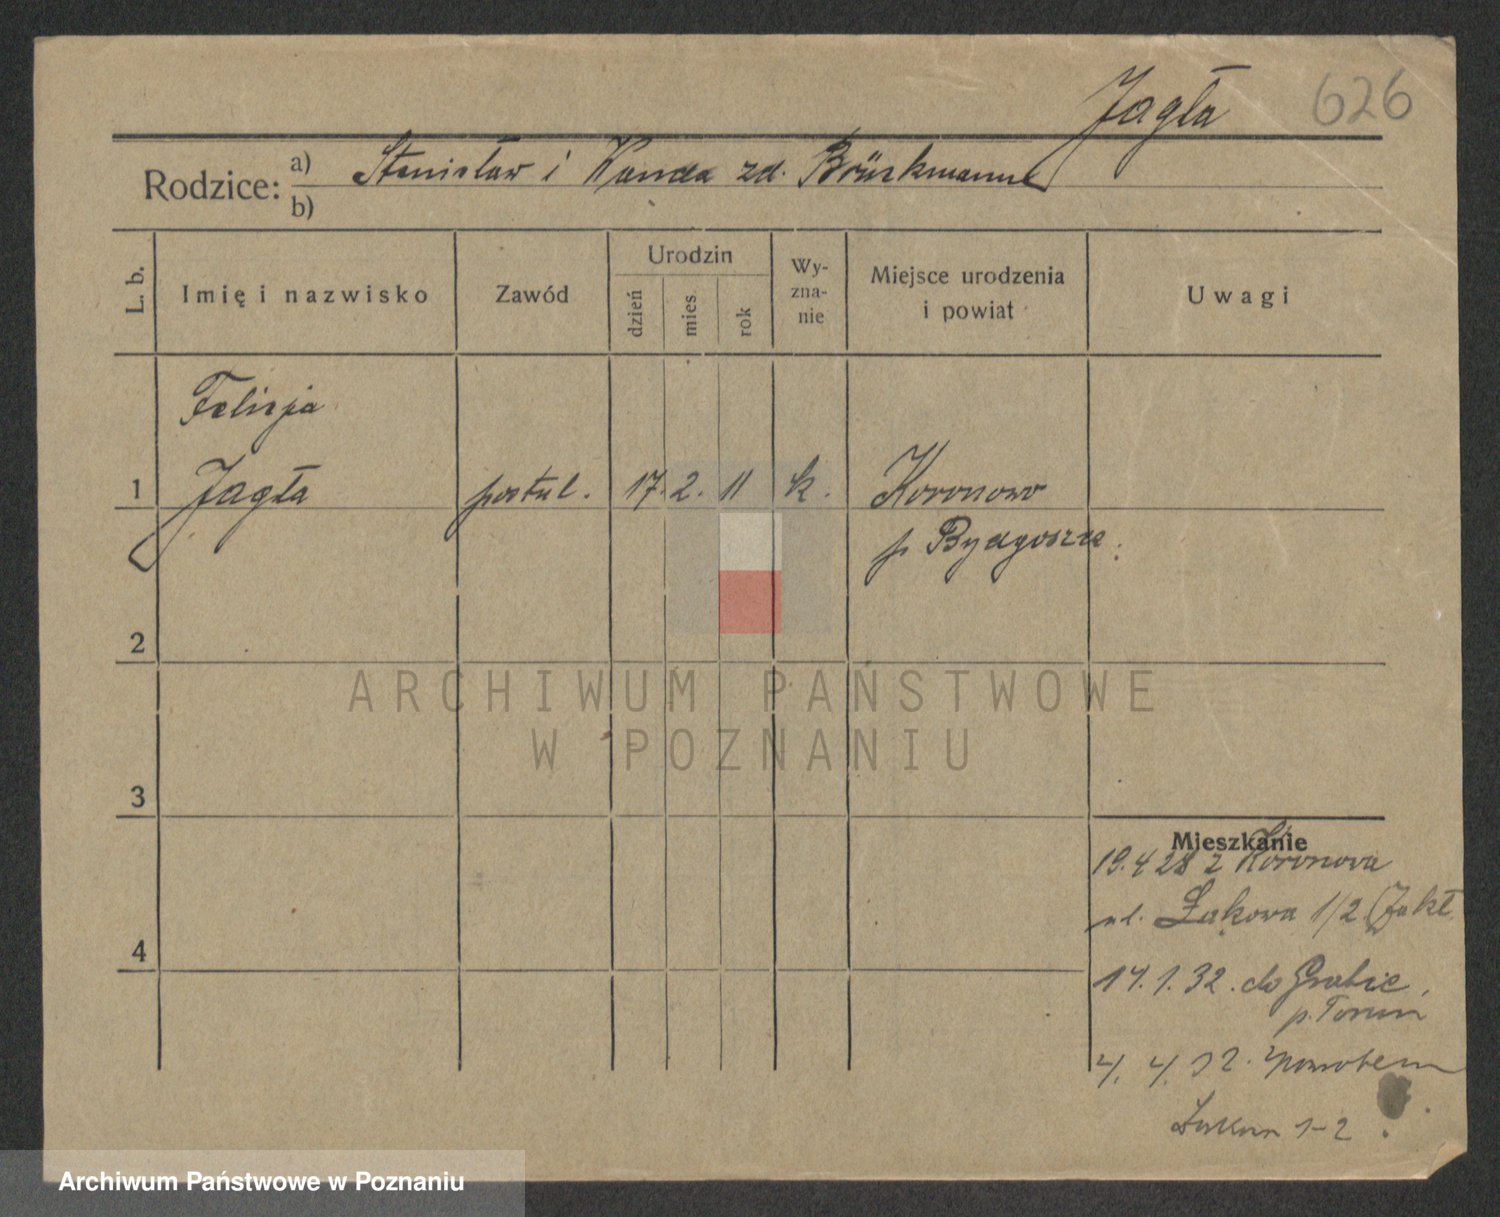 Jagła 626
Rodzice: a) Stanisław i Wanda zd. Brückmann
b)
L. b. Imię i nazwisko Zawód Urodzin dzień mies rok Wy-zna-nie Miejsce urodzenia i powiat Uwagi
Felicja
1 Jagła postul. 17. 2. 11 k. Koronowo
p Bydgoszcz
2
ARCHIWUM PAŃSTWOWE
W POZNANIU
3
Mieszkanie
19.4 28 z Koronowa
ul. Łąkowa 1/2 (Zakł.
4
17.1.32. do Grabie,
p. Toruń
4. 4. 32. z powrotem
Łąkowa 1-2
Archiwum Państwowe w Poznaniu